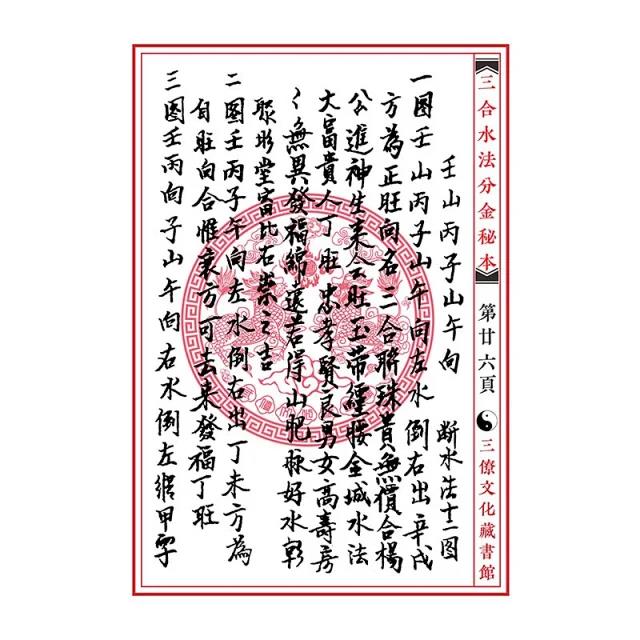 三合水法分金秘本 第廿六頁 三僚文化藏書館
壬山丙子山午向 斷水法十二图
一图壬山丙子山午向左水倒右出辛戌
方為正旺向名三合聯珠貴無價合楊
公進神生来会旺玉带纏腰金城水法
大富貴人丁旺忠孝賢良男女高壽房
々無異發福綿遠若浔山肥好水
聚明堂富比石崇之吉
二图壬丙子午向左水倒右出丁未方為
自旺向合惟衰方可去来發福丁旺
三图壬丙向子山午向右水倒左經甲字